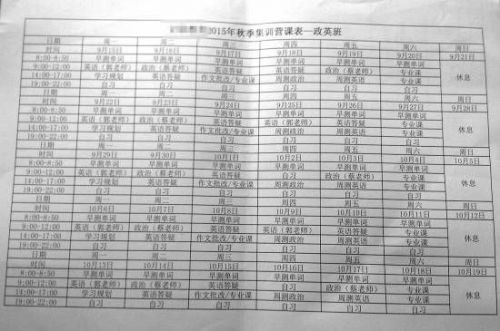 2015年秋季集训营课表—政英班
日期 周一 周二 周三 周四 周五 周六 周日
时间 9月15日 9月16日 9月17日 9月18日 9月19日 9月20日 9月21日
8:00-8:50 早测单词 早测单词 早测单词 早测单词 早测单词 早测单词 休息
9:00-12:00 英语(郭老师) 政治(蔡老师) 英语答疑 英语(郭老师) 政治(蔡老师) 专业课
14:00-17:00 学习规划 英语答疑 作文批改/专业课 周测政治 周测英语 专业课
19:00-22:00 自习 自习 自习 自习 自习 自习
日期 周一 周二 周三 周四 周五 周六 周日
时间 9月22日 9月23日 9月24日 9月25日 9月26日 9月27日 9月28日
8:00-8:50 早测单词 早测单词 早测单词 早测单词 早测单词 早测单词 休息
9:00-12:00 英语(郭老师) 政治(蔡老师) 英语答疑 英语(郭老师) 政治(蔡老师) 专业课
14:00-17:00 学习规划 英语答疑 作文批改/专业课 周测政治 周测英语 专业课
19:00-22:00 自习 自习 自习 自习 自习 自习
日期 周一 周二 周三 周四 周五 周六 周日
时间 9月29日 9月30日 10月1日 10月2日 10月3日 10月4日 10月5日
8:00-8:50 早测单词 早测单词 早测单词 早测单词 早测单词 早测单词 休息
9:00-12:00 英语(郭老师) 政治(蔡老师) 英语答疑 英语(郭老师) 政治(蔡老师) 专业课
14:00-17:00 学习规划 英语答疑 作文批改/专业课 周测政治 周测英语 专业课
19:00-22:00 自习 自习 自习 自习 自习 自习
日期 周一 周二 周三 周四 周五 周六 周日
时间 10月6日 10月7日 10月8日 10月9日 10月10日 10月11日 10月12日
8:00-8:50 早测单词 早测单词 早测单词 早测单词 早测单词 早测单词 休息
9:00-12:00 英语(郭老师) 政治(蔡老师) 英语答疑 英语(郭老师) 政治(蔡老师) 专业课
14:00-17:00 学习规划 英语答疑 作文批改/专业课 周测政治 周测英语 专业课
19:00-22:00 自习 自习 自习 自习 自习 自习
日期 周一 周二 周三 周四 周五 周六 周日
时间 10月13日 10月14日 10月15日 10月16日 10月17日 10月18日 10月19日
8:00-8:50 早测单词 早测单词 早测单词 早测单词 早测单词 早测单词 休息
9:00-12:00 英语(郭老师) 政治(蔡老师) 英语答疑 英语(郭老师) 政治(蔡老师) 专业课
14:00-17:00 学习规划 英语答疑 作文批改/专业课 周测政治 周测英语 专业课
19:00-22:00 自习 自习 自习 自习 自习 自习